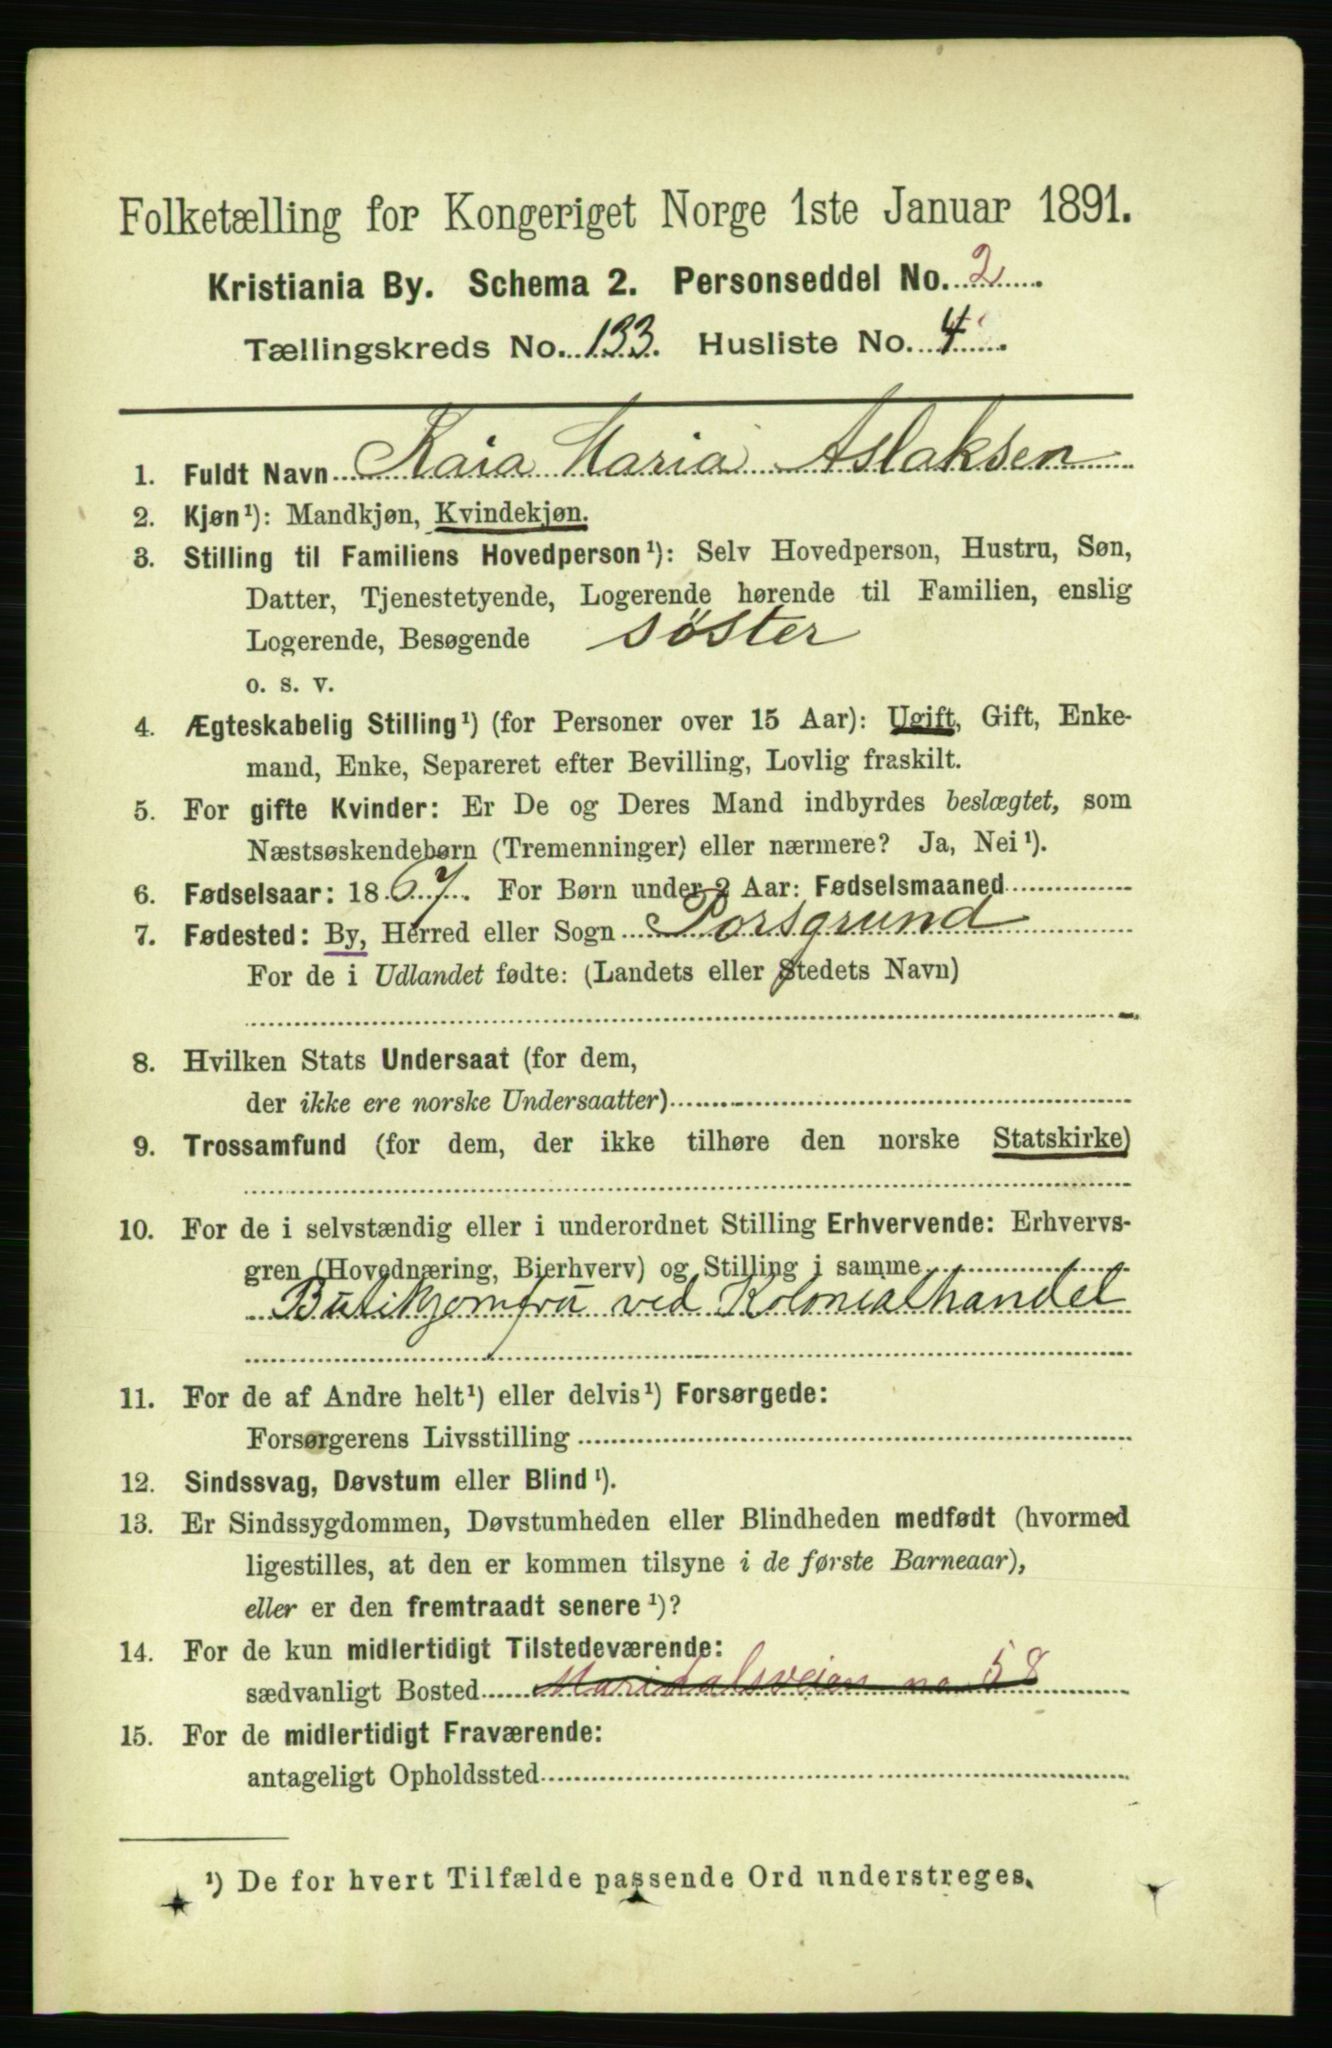 Folketælling for Kongeriget Norge 1ste Januar 1891.
Kristiania By. Schema 2. Personseddel No. 2
Tællingskreds No. 133. Husliste No. 4
1. Fuldt Navn Kaia Maria Aslaksen
2. Kjøn¹): Mandkjøn, Kvindekjøn.
3. Stilling til Familiens Hovedperson¹): Selv Hovedperson, Hustru, Søn,
Datter, Tjenestetyende, Logerende hørende til Familien, enslig
Logerende, Besøgende søster
o. s. v.
4. Ægteskabelig Stilling¹) (for Personer over 15 Aar): Ugift, Gift, Enke-
mand, Enke, Separeret efter Bevilling, Lovlig fraskilt.
5. For gifte Kvinder: Er De og Deres Mand indbyrdes beslægtet, som
Næstsøskendebørn (Tremenninger) eller nærmere? Ja, Nei¹).
6. Fødselsaar: 1867. For Børn under 2 Aar: Fødselsmaaned
7. Fødested: By, Herred eller Sogn Porsgrund
For de i Udlandet fødte: (Landets eller Stedets Navn)
8. Hvilken Stats Undersaat (for dem,
der ikke ere norske Undersaatter)
9. Trossamfund (for dem, der ikke tilhøre den norske Statskirke)
10. For de i selvstændig eller i underordnet Stilling Erhvervende: Erhvervs-
gren (Hovednæring, Bierhverv) og Stilling i samme
Butikjomfru ved Kolonialhandel
11. For de af Andre helt¹) eller delvis¹) Forsørgede:
Forsørgerens Livsstilling
12. Sindssvag, Døvstum eller Blind¹).
13. Er Sindssygdommen, Døvstumheden eller Blindheden medfødt (hvormed
ligestilles, at den er kommen tilsyne i de første Barneaar),
eller er den fremtraadt senere¹)?
14. For de kun midlertidigt Tilstedeværende:
sædvanligt Bosted Maridalsveien no 58
15. For de midlertidigt Fraværende:
antageligt Opholdssted
¹) De for hvert Tilfælde passende Ord understreges.